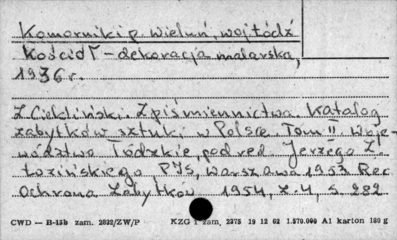 Komorniki p. Wieluń, woj. Łódź
Kościół – dekoracja malarska,
1936 r.
Z. Ciekliński. Z piśmiennictwa. Katalog
zabytków sztuki w Polsce. Tom II. Woje-
wództwo Łódzkie, pod red. Jerzego Z.
Łozińskiego PIS, Warszawa 1953 Rec
Ochrona Zabytków 1954, z. 4, s. 282
CWD — B-15b zam. 2802/ZW/P KZG 1 zam. 2375 19 12 02 1.570.000 A1 karton 180 g